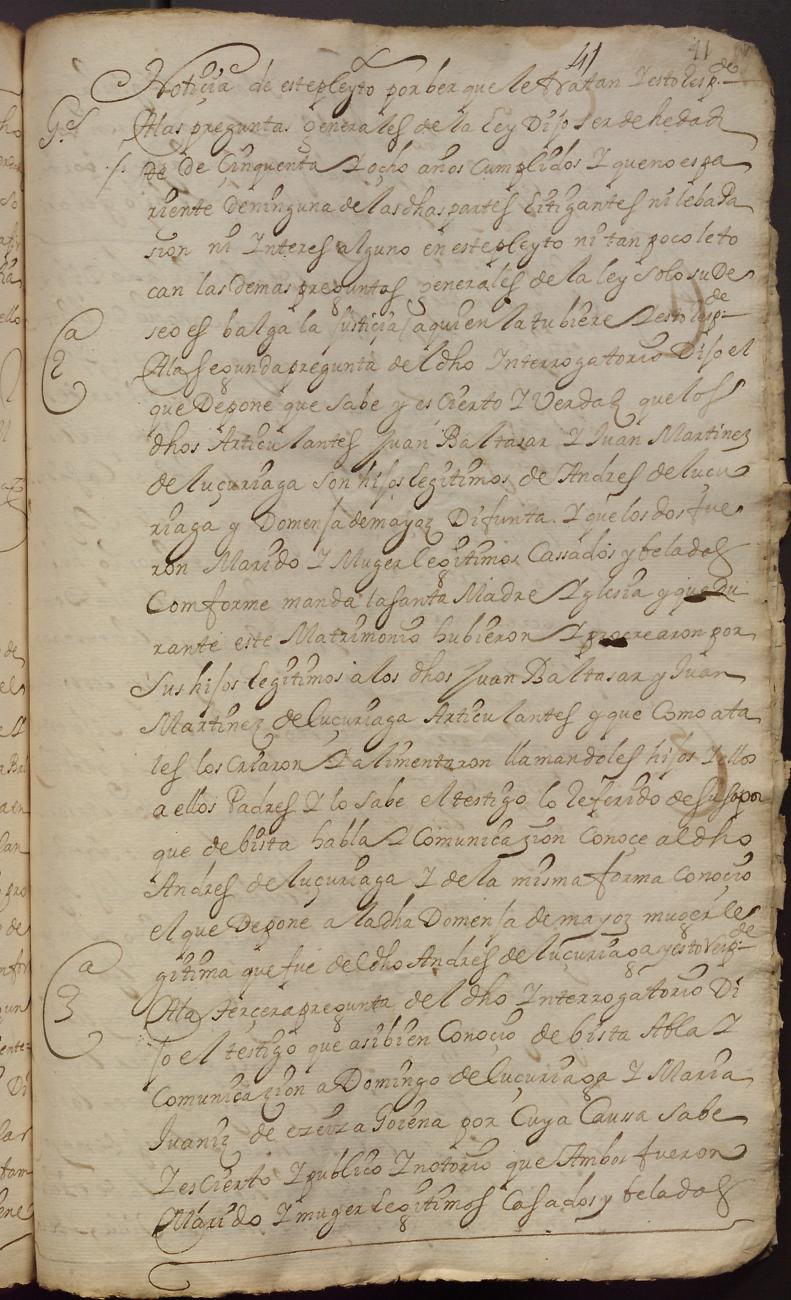 41 41
Noticia de este pleyto por ber que le tratan Y esto resp.de
G.s Alas preguntas generales de la Ley Dijo ser de hedad
de De Cinquenta Y ocho años Cumplidos Y que no es pa
riente De ninguna de las dhas partes Litigantes ni le ba Pa
sion ni Ynteres alguno en este pleyto ni tan poco le to
can las Demas preguntas generales de la ley solo su De
seo es balga la Justicia a quien la tubiere Y esto resp.de
2a Ala Segunda pregunta del dho Ynterrogatorio Dijo el
que Depone que Sabe y es Cierto Y Verdad que los
dhos Articulantes Juan Baltasar Y Juan Martinez
de luçuriaga son hijos legitimos de Andres de luçu
riaga y Domenja de mayoz Difunta Y que los dos fue
ron Marido Y Muger legitimos Cassados y belados
Comforme manda la Santa Madre Yglesia y que Du
rante este Matrimonio hubieron Y procrearon por
Sus hijos legitimos a los dhos Juan Baltasar y Juan
Martinez de luçuriaga Articulantes y que Como ata
les los Criaron Y alimentaron llamandoles hijos Y ellos
a ellos Padres Y lo Sabe el testigo lo Referido de suso por
que de bista habla Y Comunicazion Conoce al dho
Andres de luçuriaga Y de la misma forma Conocio
el que Depone a la dha Domenja de mayoz muger le
gitima que fue del dho Andres de luçuriaga y esto resp.de
3a Ala terçera pregunta del dho Ynterrogatorio Di
jo el testigo que asi bien Conocio de bista Abla Y
Comunicazion a Domingo de luçuriaga Y Maria
Juaniz de ezeiza Goiena por Cuya Caussa Sabe
Y es Cierto Y publico Y notorio que Ambos fueron
Marido Y muger Legitimos Casados y belados